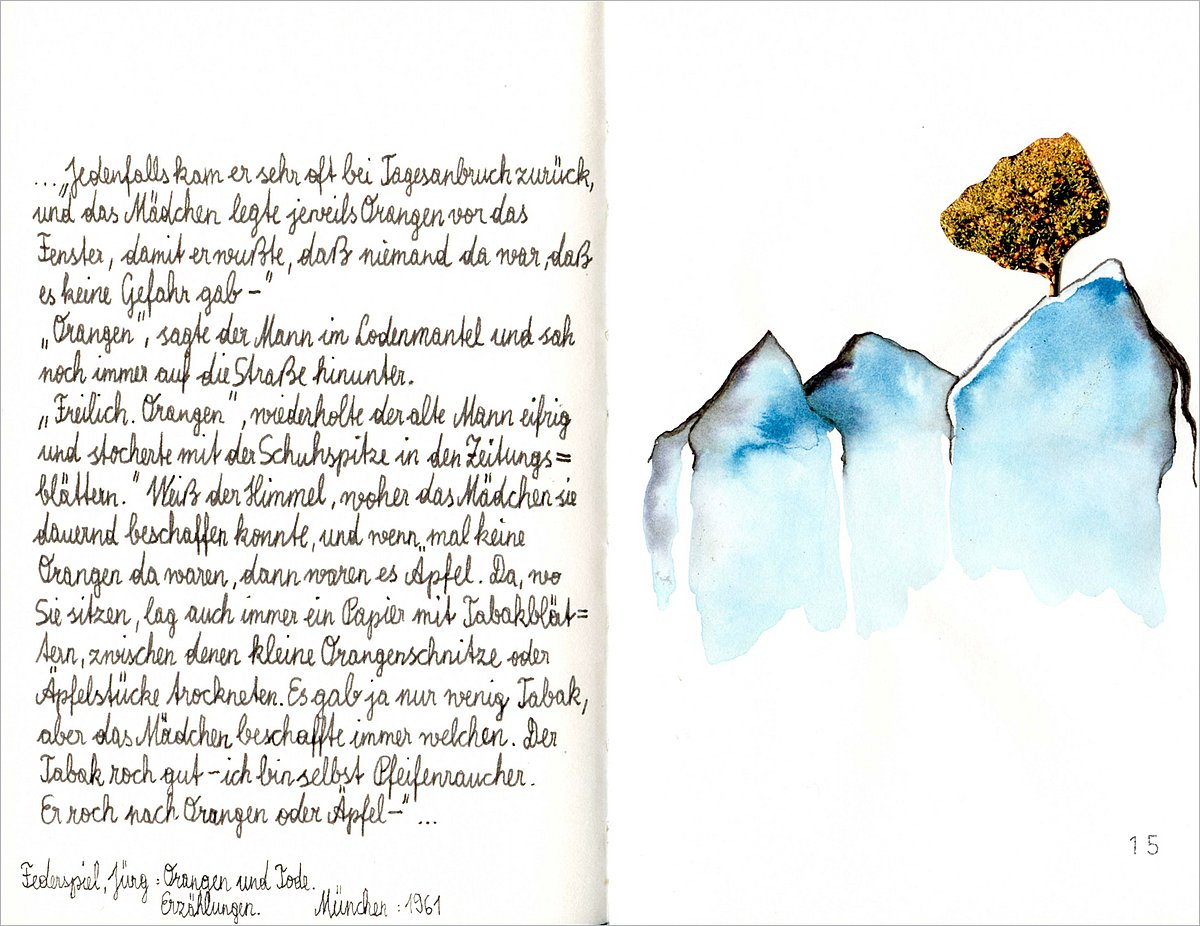 ... „Jedenfalls kam er sehr oft bei Tagesanbruch zurück,
und das Mädchen legte jeweils Orangen vor das
Fenster, damit er wußte, daß niemand da war, daß
es keine Gefahr gab –"
„Orangen", sagte der Mann im Lodenmantel und sah
noch immer auf die Straße hinunter.
„Freilich. Orangen", wiederholte der alte Mann eifrig
und stocherte mit der Schuhspitze in den Zeitungs=
blättern. " Weiß der Himmel, woher das Mädchen sie
dauernd beschaffen konnte, und wenn mal keine
Orangen da waren, dann waren es Äpfel. Da, wo
Sie sitzen, lag auch immer ein Papier mit Tabakblät=
tern, zwischen denen kleine Orangenschnitze oder
Äpfelstücke trockneten. Es gab ja nur wenig Tabak,
aber das Mädchen beschaffte immer welchen. Der
Tabak roch gut – ich bin selbst Pfeifenraucher.
Er roch nach Orangen oder Äpfel –" ...
Federspiel, Jürg: Orangen und Tode.
Erzählungen. München: 1961
15